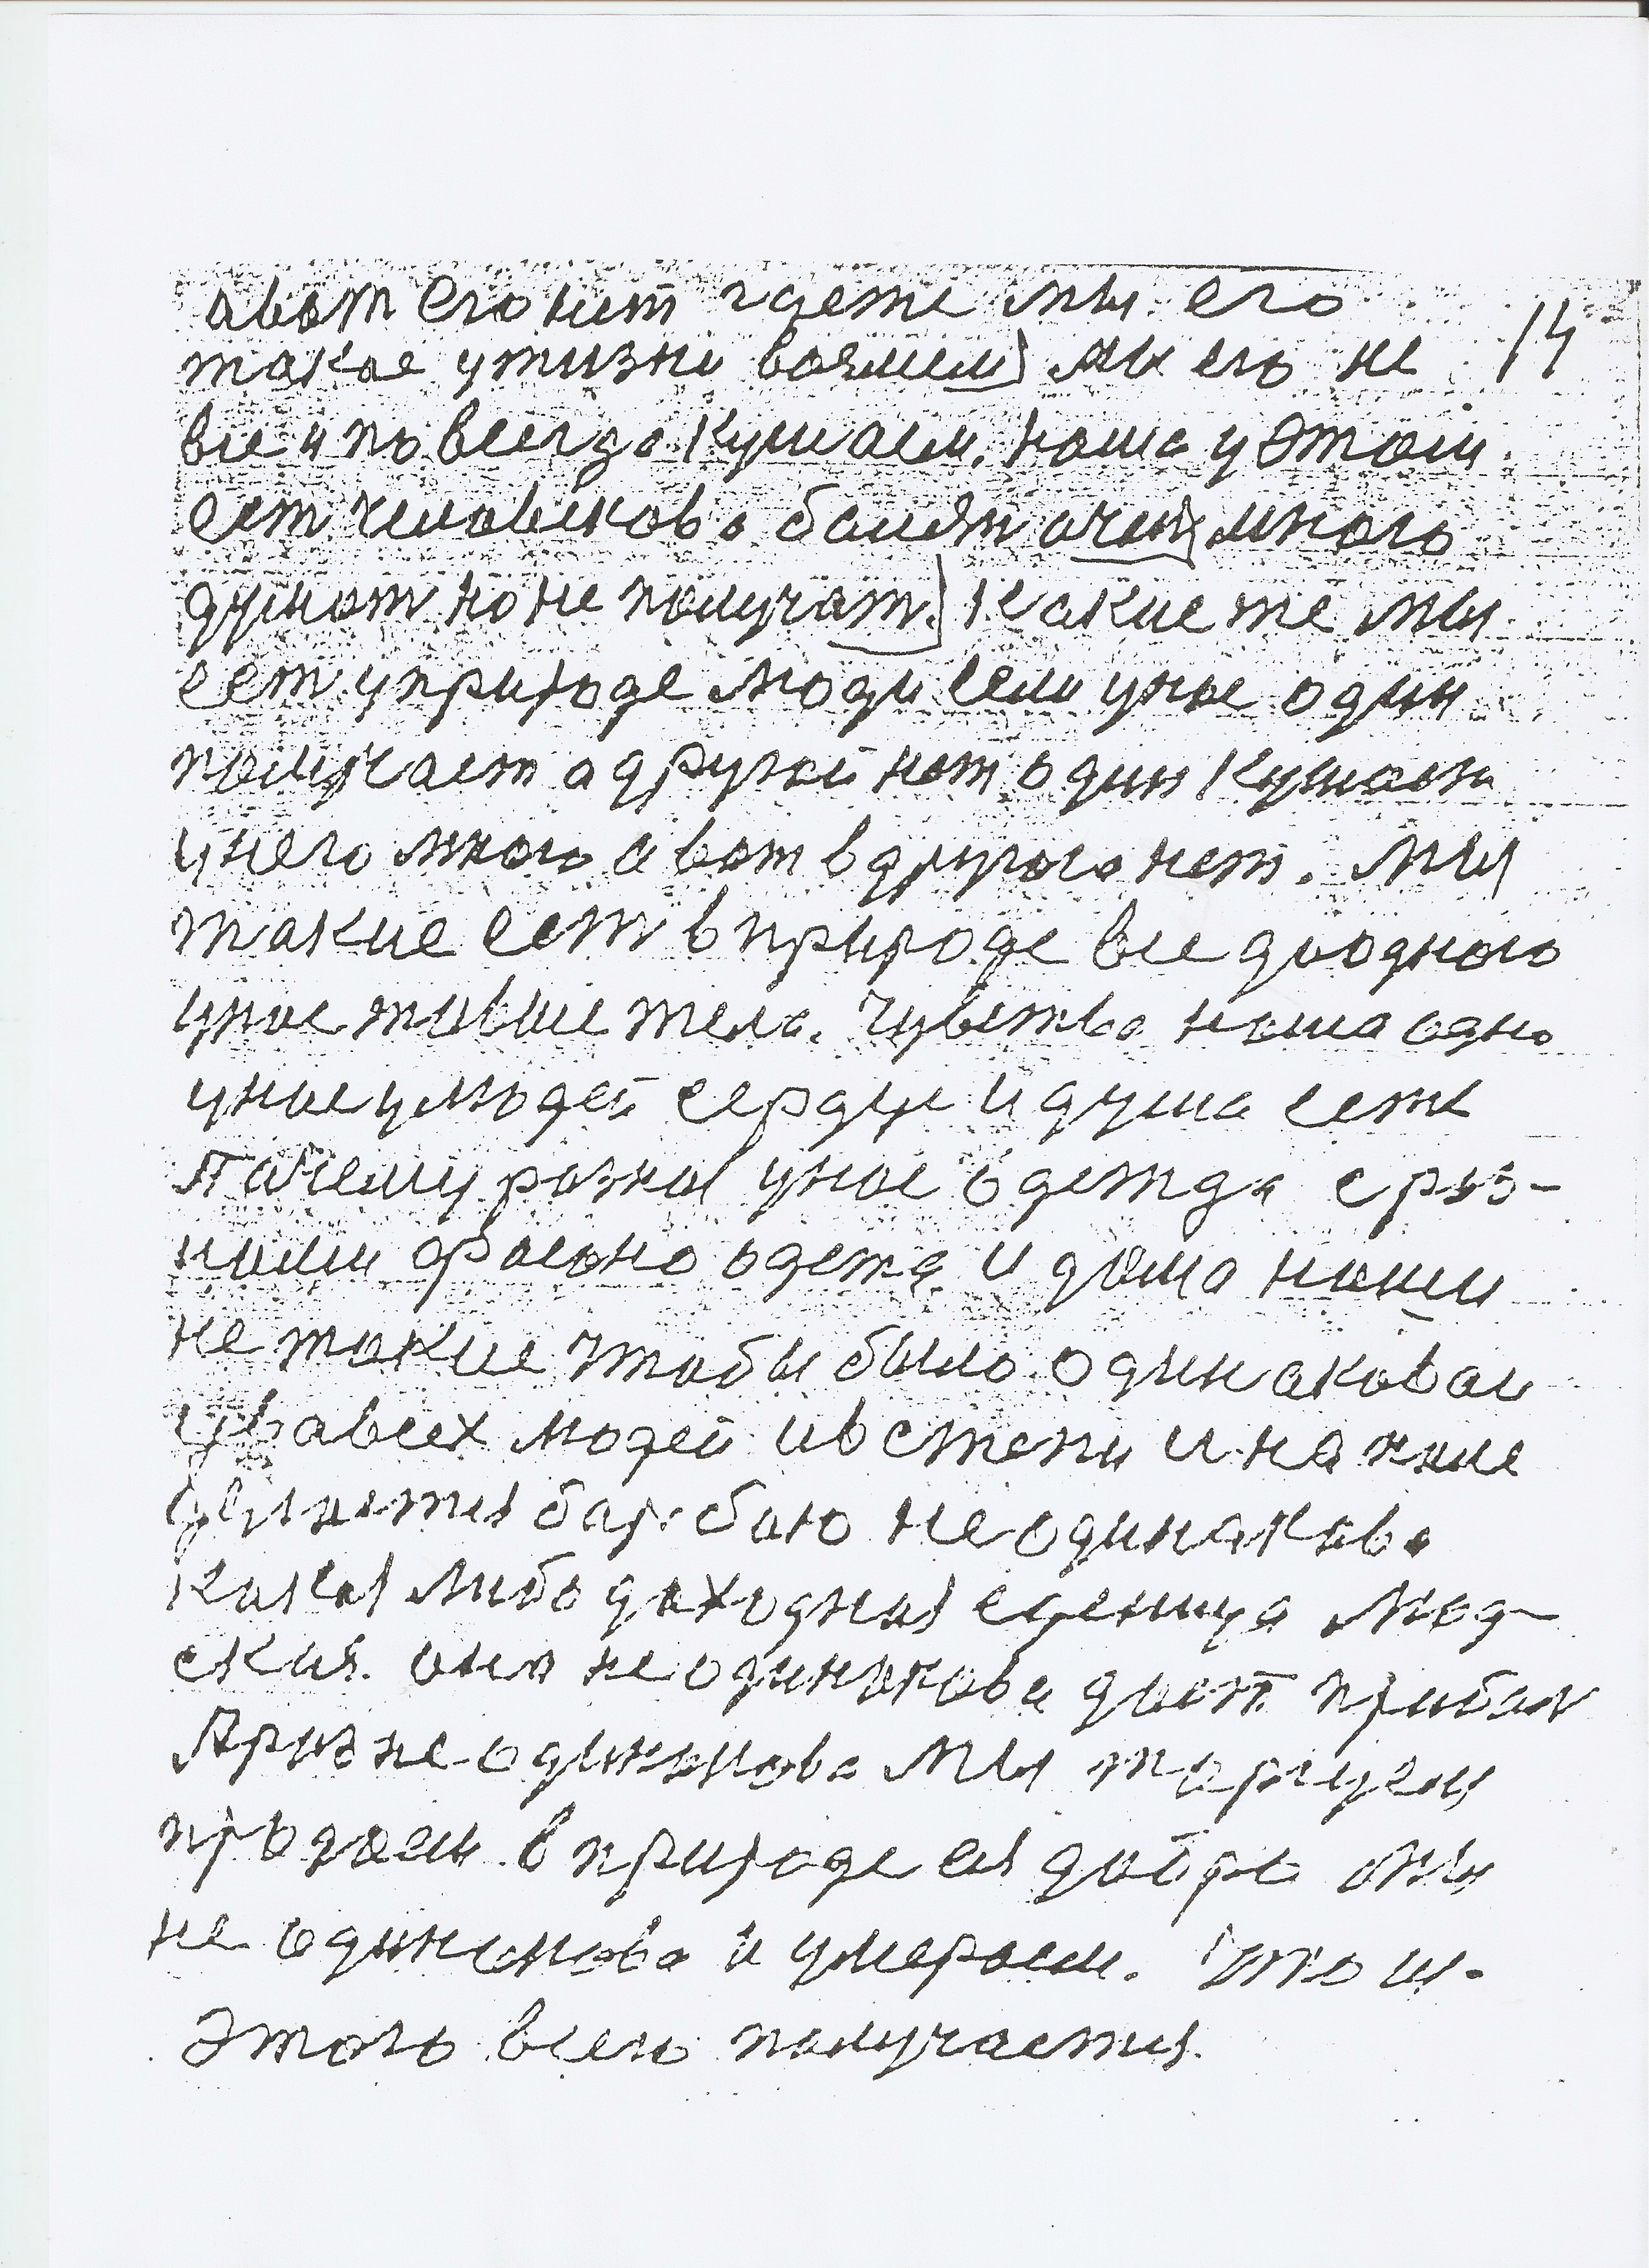 авот его нит гдеже мы его
такое ужизни возмем мы его не 14
все и повсегда кушаем. наша уэтом
ест человеков а болят очен много
думают но не получат. Какие же мы
ест уприроде люди если унас один
получает а другой нет один кушает
унего много а вот в другого нет. мы
такие ест в природе все до одного
унас живые тела. Чувство наша одно
унас улюдей сердце и душа ест
Почему разная унас одежда с раз-
ными одежа и дома наши
не такие чтобы было одинаковаи
увавсех людей и встепи и на
не одинакова
какая либо доходная еденица люд-
ская. она не одинакова дает прибал
не одинакова мы торгуем
продаем в природе ея добро мы
не одинакова и умераем. что и.
этого всего получается.